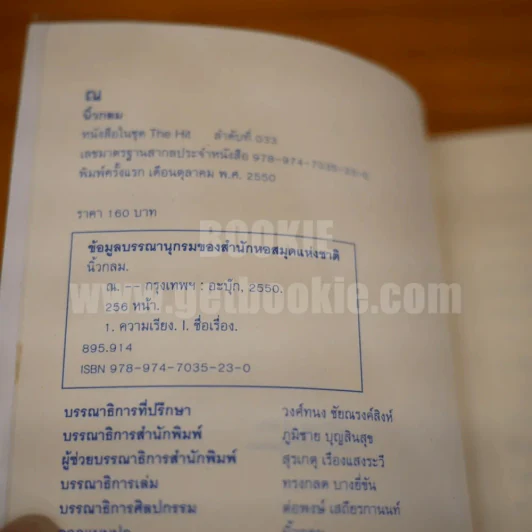 ณ
นิ้วกลม
หนังสือในชุด The Hit ลำดับที่ 033
เลขมาตรฐานสากลประจำหนังสือ 978-974-7035-23-0
พิมพ์ครั้งแรก เดือนตุลาคม พ.ศ. 2550
ราคา 160 บาท
BOOKIE
www.getbookie.com
ข้อมูลบรรณานุกรมของสำนักหอสมุดแห่งชาติ
นิ้วกลม.
ณ. -- กรุงเทพฯ : อะบุ๊ก, 2550.
256 หน้า.
1. ความเรียง. I. ชื่อเรื่อง.
895.914
ISBN 978-974-7035-23-0
บรรณาธิการที่ปรึกษา วงศ์ทนง ชัยณรงค์สิงห์
บรรณาธิการสำนักพิมพ์ ภูมิชาย บุญสินสุข
ผู้ช่วยบรรณาธิการสำนักพิมพ์ สุรเกตุ เรืองแสงระวี
บรรณาธิการเล่ม ทรงกลด บางยี่ขัน
บรรณาธิการศิลปกรรม ต่อพงษ์ เสถียรกานนท์